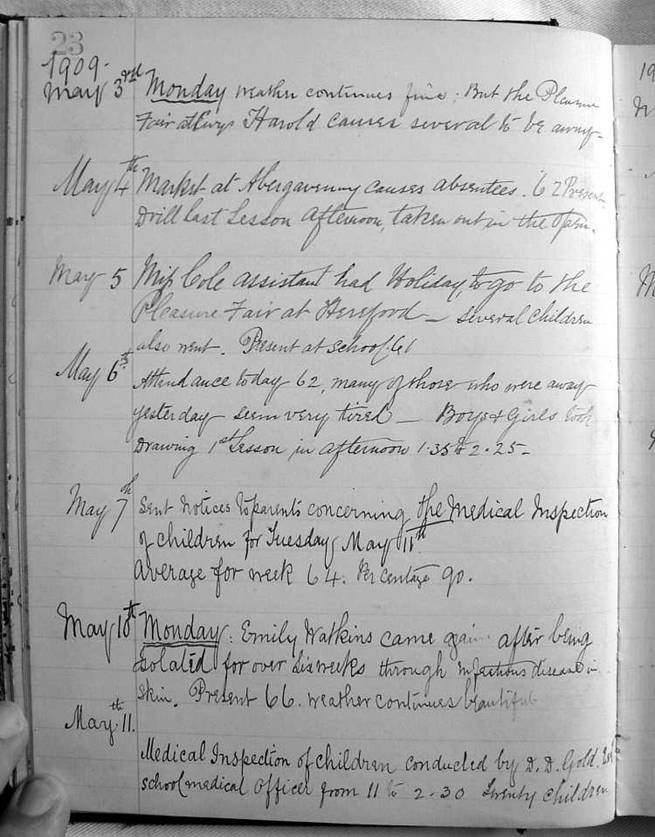 23
1909.
May 3rd Monday weather continues fine. But the Pleasure
Fair at Ewyas Harold causes several to be away.
May 4th Market at Abergavenny causes absentees. 62 Present.
Drill last Lesson afternoon, taken out in the open.
May 5 Miss Cole assistant had Holiday, to go to the
Pleasure Fair at Hereford — several children
also went. Present at school 61
May 6th Attendance today 62, many of those who were away
yesterday seem very tired — Boys & Girls took
Drawing 1st Lesson in afternoon 1.35 to 2.25.
May 7th Sent notices to parents concerning the Medical Inspection
of children for Tuesday, May 11th
Average for week 64. Percentage 90.
May 10th Monday: Emily Watkins came again after being
isolated for over six weeks through infectious disease in
skin. Present 66. weather continues beautiful
May 11th.
Medical Inspection of children conducted by D. D. Gold.
school medical officer from 11 to 2-30 Twenty children
19